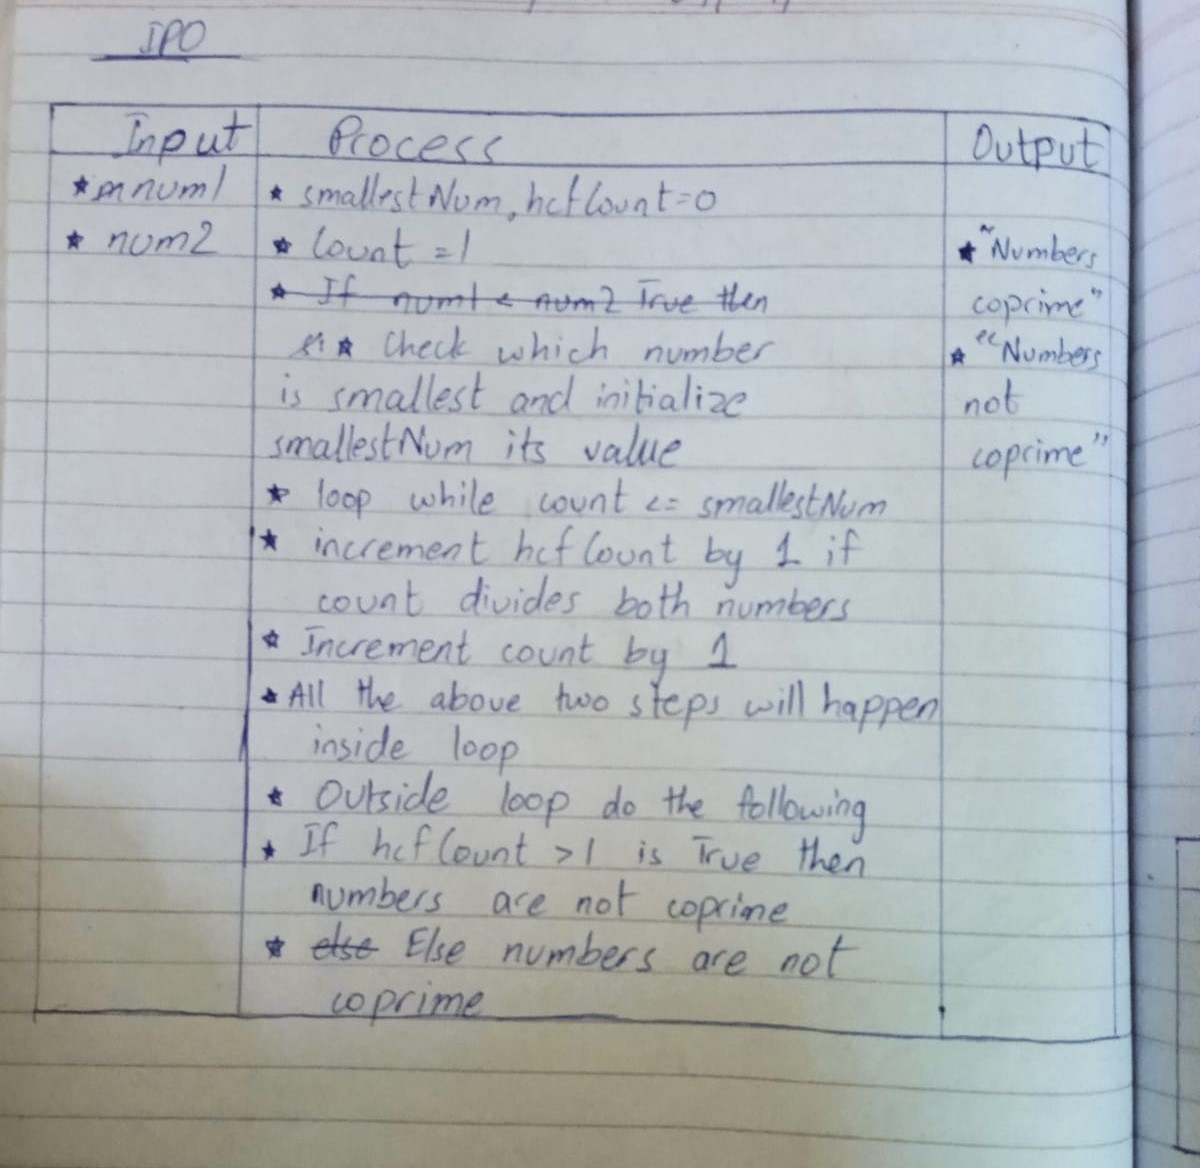 IPO
Input
Process
Output
★ num1
★ num2
★ smallestNum, hcfCount=0
★ Count =1
★ If num1 < num2 True then
★ Check which number
is smallest and initialize
smallestNum its value
★ loop while count <= smallestNum
★ increment hcfCount by 1 if
count divides both numbers
★ Increment count by 1
★ All the above two steps will happen
inside loop
★ Outside loop do the following
★ If hcfCount >1 is True then
numbers are not coprime
★ else Else numbers are not
coprime
★ "Numbers
coprime"
★ "Numbers
not
coprime"